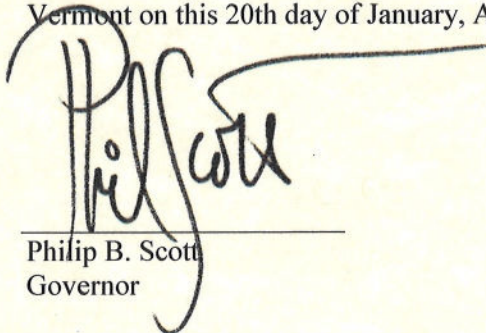 Vermont on this 20th day of January, A
Phil Scott
Philip B. Scott
Governor